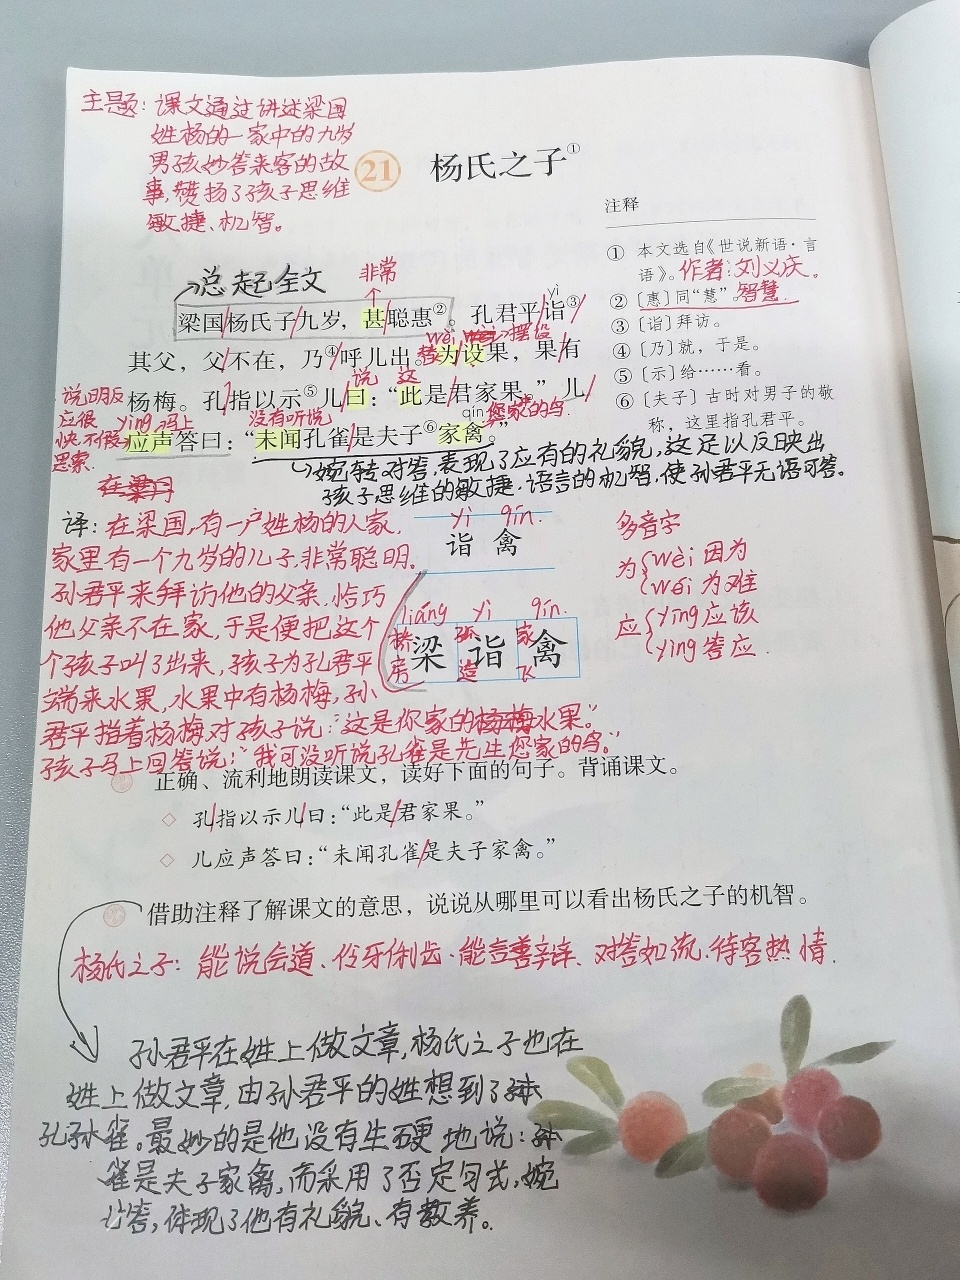 主题：课文通过讲述梁国
姓杨的一家中的九岁
男孩妙答来客的故
事，赞扬了孩子思维
敏捷、机智。
21 杨氏之子①
注释
① 本文选自《世说新语·言
语》。作者：刘义庆。
②〔惠〕同“慧”。智慧.
③〔诣〕拜访。
④〔乃〕就，于是。
⑤〔示〕给……看。
⑥〔夫子〕古时对男子的敬
称，这里指孔君平。
总起全文
非常
yì
梁国/杨氏子/九岁，甚聪惠②。孔君平/诣③/
wéi 摆设
其父，父/不在，乃④/呼儿出。为设果，果/有
说 这
杨梅。孔/指以示⑤儿/曰：“此是/君家果。”儿/
说明反
应很
快不假
思索.
yìng 马上
没有听说
qín 您家的鸟.
应声答曰：“未闻孔雀/是夫子⑥家禽。”
婉转对答，表现了应有的礼貌，这足以反映出
孩子思维的敏捷.语言的机智，使孙君平无语可答。
译：在梁国，有一户姓杨的人家.
家里有一个九岁的儿子.非常聪明.
孙君平来拜访他的父亲，恰巧
他父亲不在家，于是便把这个
个孩子叫了出来，孩子为孔君平
端来水果，水果中有杨梅，孙
君平指着杨梅对孩子说：“这是你家的杨梅水果.”
孩子马上回答说：“我可没听说孔雀是先生您家的鸟.”
yì qín.
诣 禽
liáng yì qín.
桥 家
梁 诣 禽
房 造 飞
多音字
为{wèi 因为
wéi 为难
应{yīng 应该
yìng 答应.
正确、流利地朗读课文，读好下面的句子。背诵课文。
◇ 孔/指以示儿/曰：“此是/君家果。”
◇ 儿应声答曰：“未闻孔雀/是夫子家禽。”
借助注释了解课文的意思，说说从哪里可以看出杨氏之子的机智。
杨氏之子：能说会道、伶牙俐齿、能言善辩、对答如流.待客热情.
孙君平在姓上做文章，杨氏之子也在
姓上做文章.由孙君平的姓想到了
孔孙雀。最妙的是他没有生硬地说：
雀是夫子家禽，而采用了否定句式，婉
答，体现了他有礼貌、有教养。